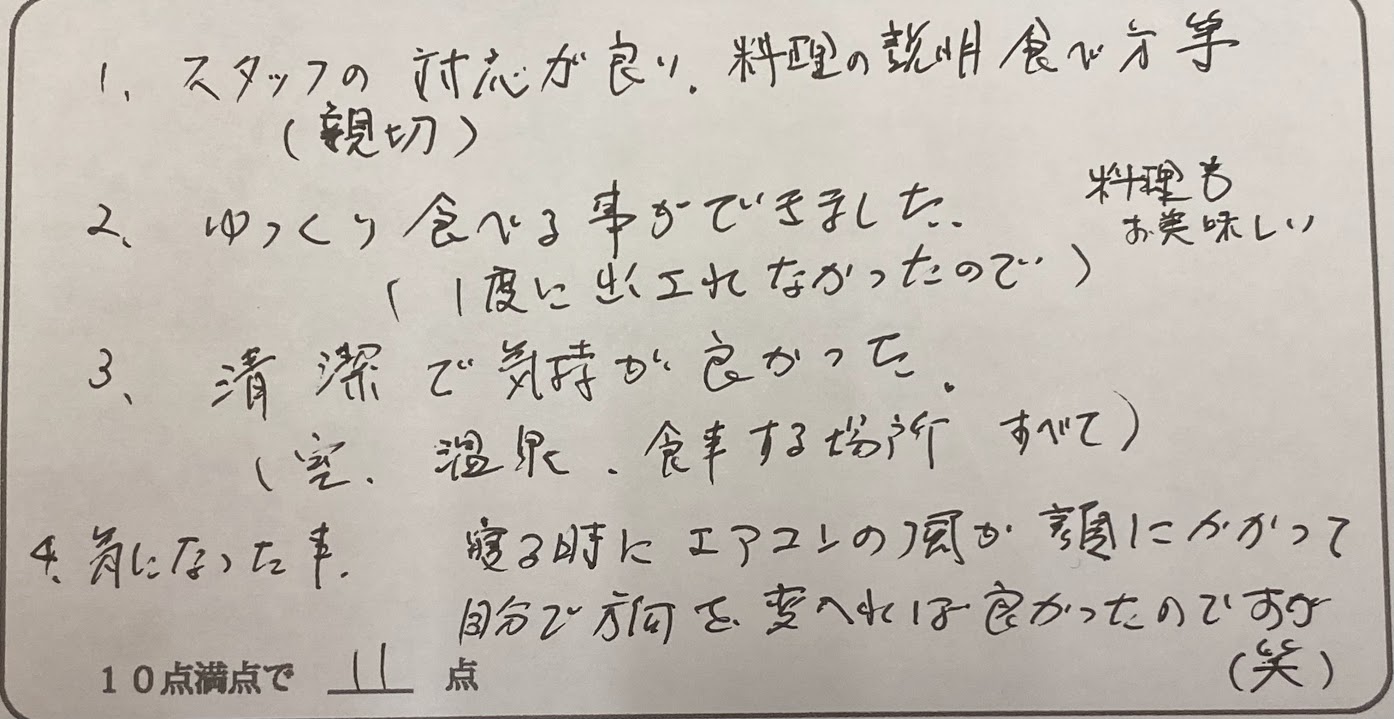 1、スタッフの対応が良い、料理の説明食べ方等
(親切)
2、ゆっくり食べる事ができました、
料理も
お美味しい
(1度に出されなかったので)
3、清潔で気持が良かった。
(室、温泉、食事する場所 すべて)
4、気になった事、 寝る時にエアコンの風が顔にかかって
自分で方向を変へれば良かったのですが
(笑)
10点満点で 11 点